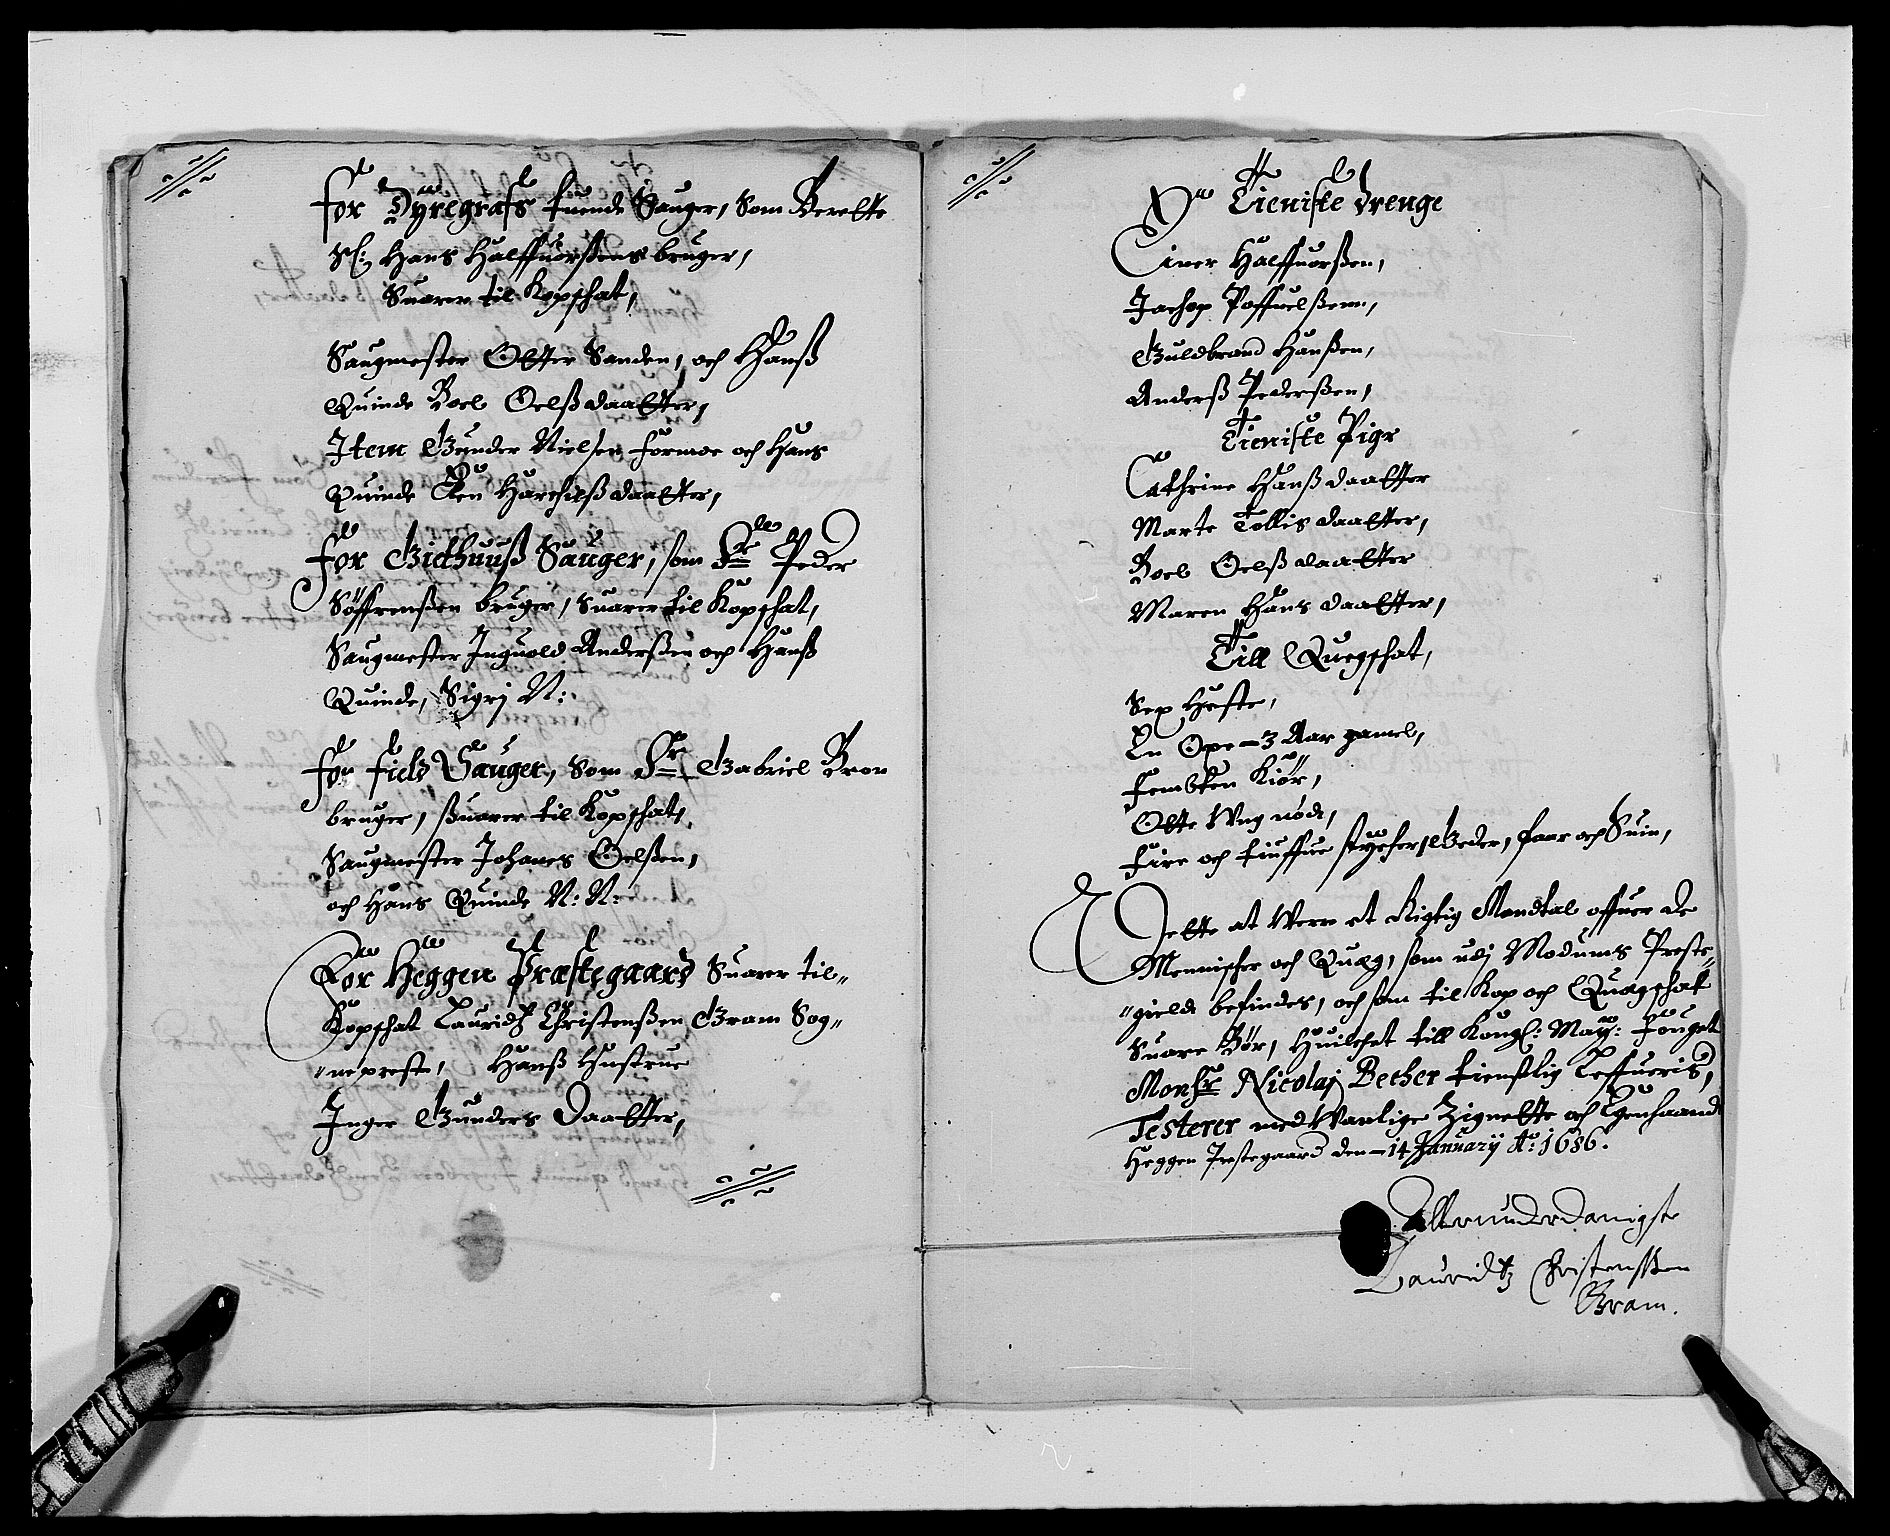 For Dyregrafs tuende Sauger, som Berette
Sl: Hans Halffuorßens bruger,
Suarer til Kopschat,
Saugmester Olter Sanden, och Hanß
Quinde Boel Oelß daatter,
Item Gunder Nielsen Formoe och Hans
Quinde Harchilß daatter,
For Giethuuß Sauger, som Sr Peder
Søffrenßen bruger, suarer til Kopschat,
Saugmester Inguold Anderßen och Hanß
Quinde, Sigrj N:
For Field Sauger, som Sr Gabriel Bron
bruger, ßuarer til Kopschat,
Saugmester Johanes Oelßen,
och Hans Quinde N: N:
For Heggen Præstegaard Suarer til
Kopschat Lauridtz Christenßen Gram Sog-
nepreste, Hanß Hustrue
Inger Gunders Daatter,
Tieniste Drenge
Einer Halffuorßen,
Jachop Poffuelßenn,
Guldbrand Hanßen,
Anderß Pederßen,
Tieniste Piger
Cathrine Hanß daatter
Marte Tollis daatter,
Boel Oelß daatter
Maren Hans daatter,
Till Quegschat,
Sex Heste,
En Oxe 3 Aar gamel,
Fembten Kiør,
Otte Ung nød,
Fire och tiuffue stycher, Geder, faar och Suin,
Dette at Were et Rigtig Mandtal offuer de
Mennischer och Quæg, som udj Modums Preste-
gield befindes, och som til Kop och Quægschat
Suare Bør, Huilchet till Kongl: May: Fouget
Monsr Nicolaj Becher tienstlig Leffueris,
Testerer med Wanlige Zignette och Egenhaand
Heggen Prestegaard den 14 January Ao: 1686.
Allerunderdanigste
Lauridtz Christensßen
Gram.